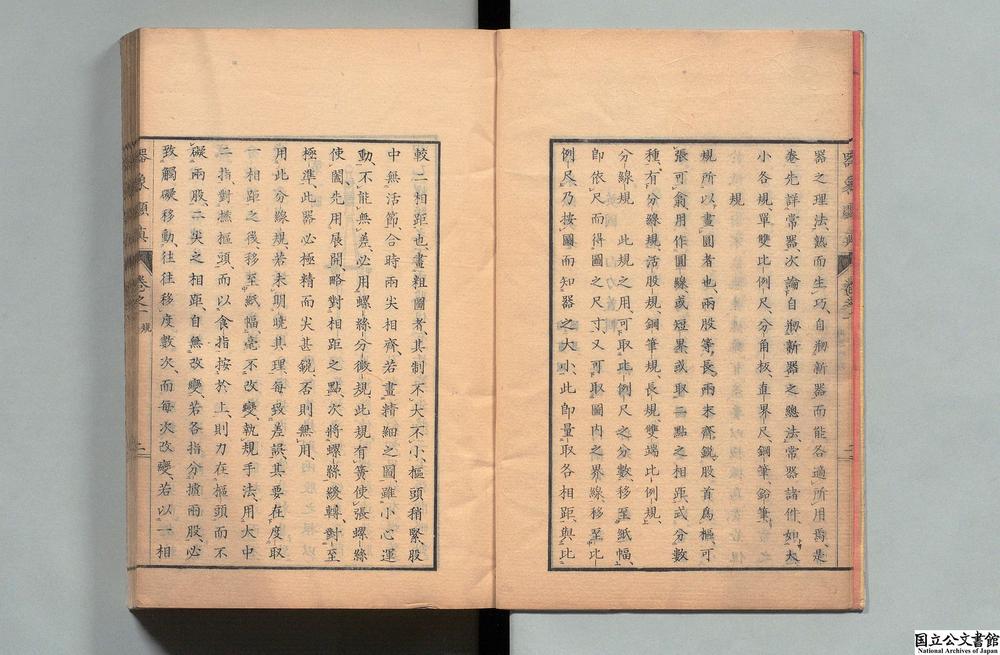 器之理法、熟而生巧、自剏新器而能各適所用焉、是
卷先詳常器、次論自剏新器之總法、常器諸件、如大
小各規、單雙比例尺、分角板、直界尺、鋼筆、鉛筆、
規
規所以畫圓者也、兩股等長、兩末齊銳、股首爲樞、可
張可翕、用作圓線、或短界、或取二點之相距、或分數
種、有分線規、活股規、鋼筆規、長規、雙端比例規、
分線規 此規之用、可取比例尺之分數、移至紙幅、
卽依尺而得圖之尺寸、又可取圖內之界線、移至比
例尺、乃按圖而知器之大小、此卽量取各相距、與比
較二相距也、畫粗圖者、其制不大不小、樞頭稍緊、股
中無活節、合時兩尖相齊、若畫精細之圖、雖小心運
動、不能無差、必用螺絲分微規、此規有簧使張、螺絲
使闔、先用展開、略對相距之點、次將螺絲緩轉、對至
極準、此器必極精而尖甚銳、否則無用、
用此分線規、若未明曉其理、每致差誤、其要在度取
一相距之後、移至紙幅、毫不改變、執規手法、用大中
二指、對撚樞頭、而以食指按於上、則力在樞頭而不
礙兩股、二尖之相距、自無改變、若各指分攎兩股、必
致觸礙移動、往往移度數次、而每次改變、若以一相
器象顯真
卷之一
規
二
国立公文書館
National Archives of Japan